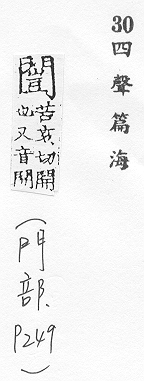 30 四聲篇海
苦亥切開
也又音開
(門部. P249)